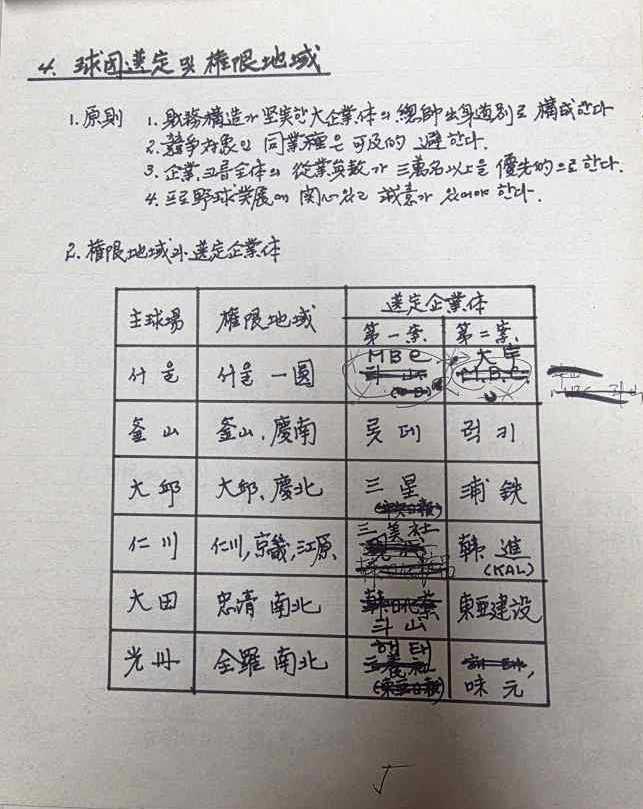 4. 球団選定 및 権限地域
1. 原則 1. 財務構造가 堅実한 大企業体의 總帥 出身道別로 構成한다
2. 競争対象인 同業種은 可及的 避한다.
3. 企業그룹全体의 従業員数가 三萬名以上을 優先的으로 한다.
4. 프로野球発展에 関心있고 誠意가 있어야 한다.
2. 権限地域과 選定企業体
主球場 権限地域 選定企業体
第一案 第二案
서울 서울一圓 MBC 大宇
斗山 M.B.C.
釜山 釜山, 慶南 롯데 럭키
大邱 大邱, 慶北 三星 浦鉄
(中央日報)
仁川 仁川, 京畿, 江原 三美社 韓進
(KAL)
大田 忠清南北 斗山 東亜建設
光州 全羅南北 해태 味元
三養社
(東亜日報)